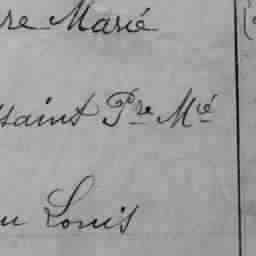 re Marié
saint Pre Mié
u Louis